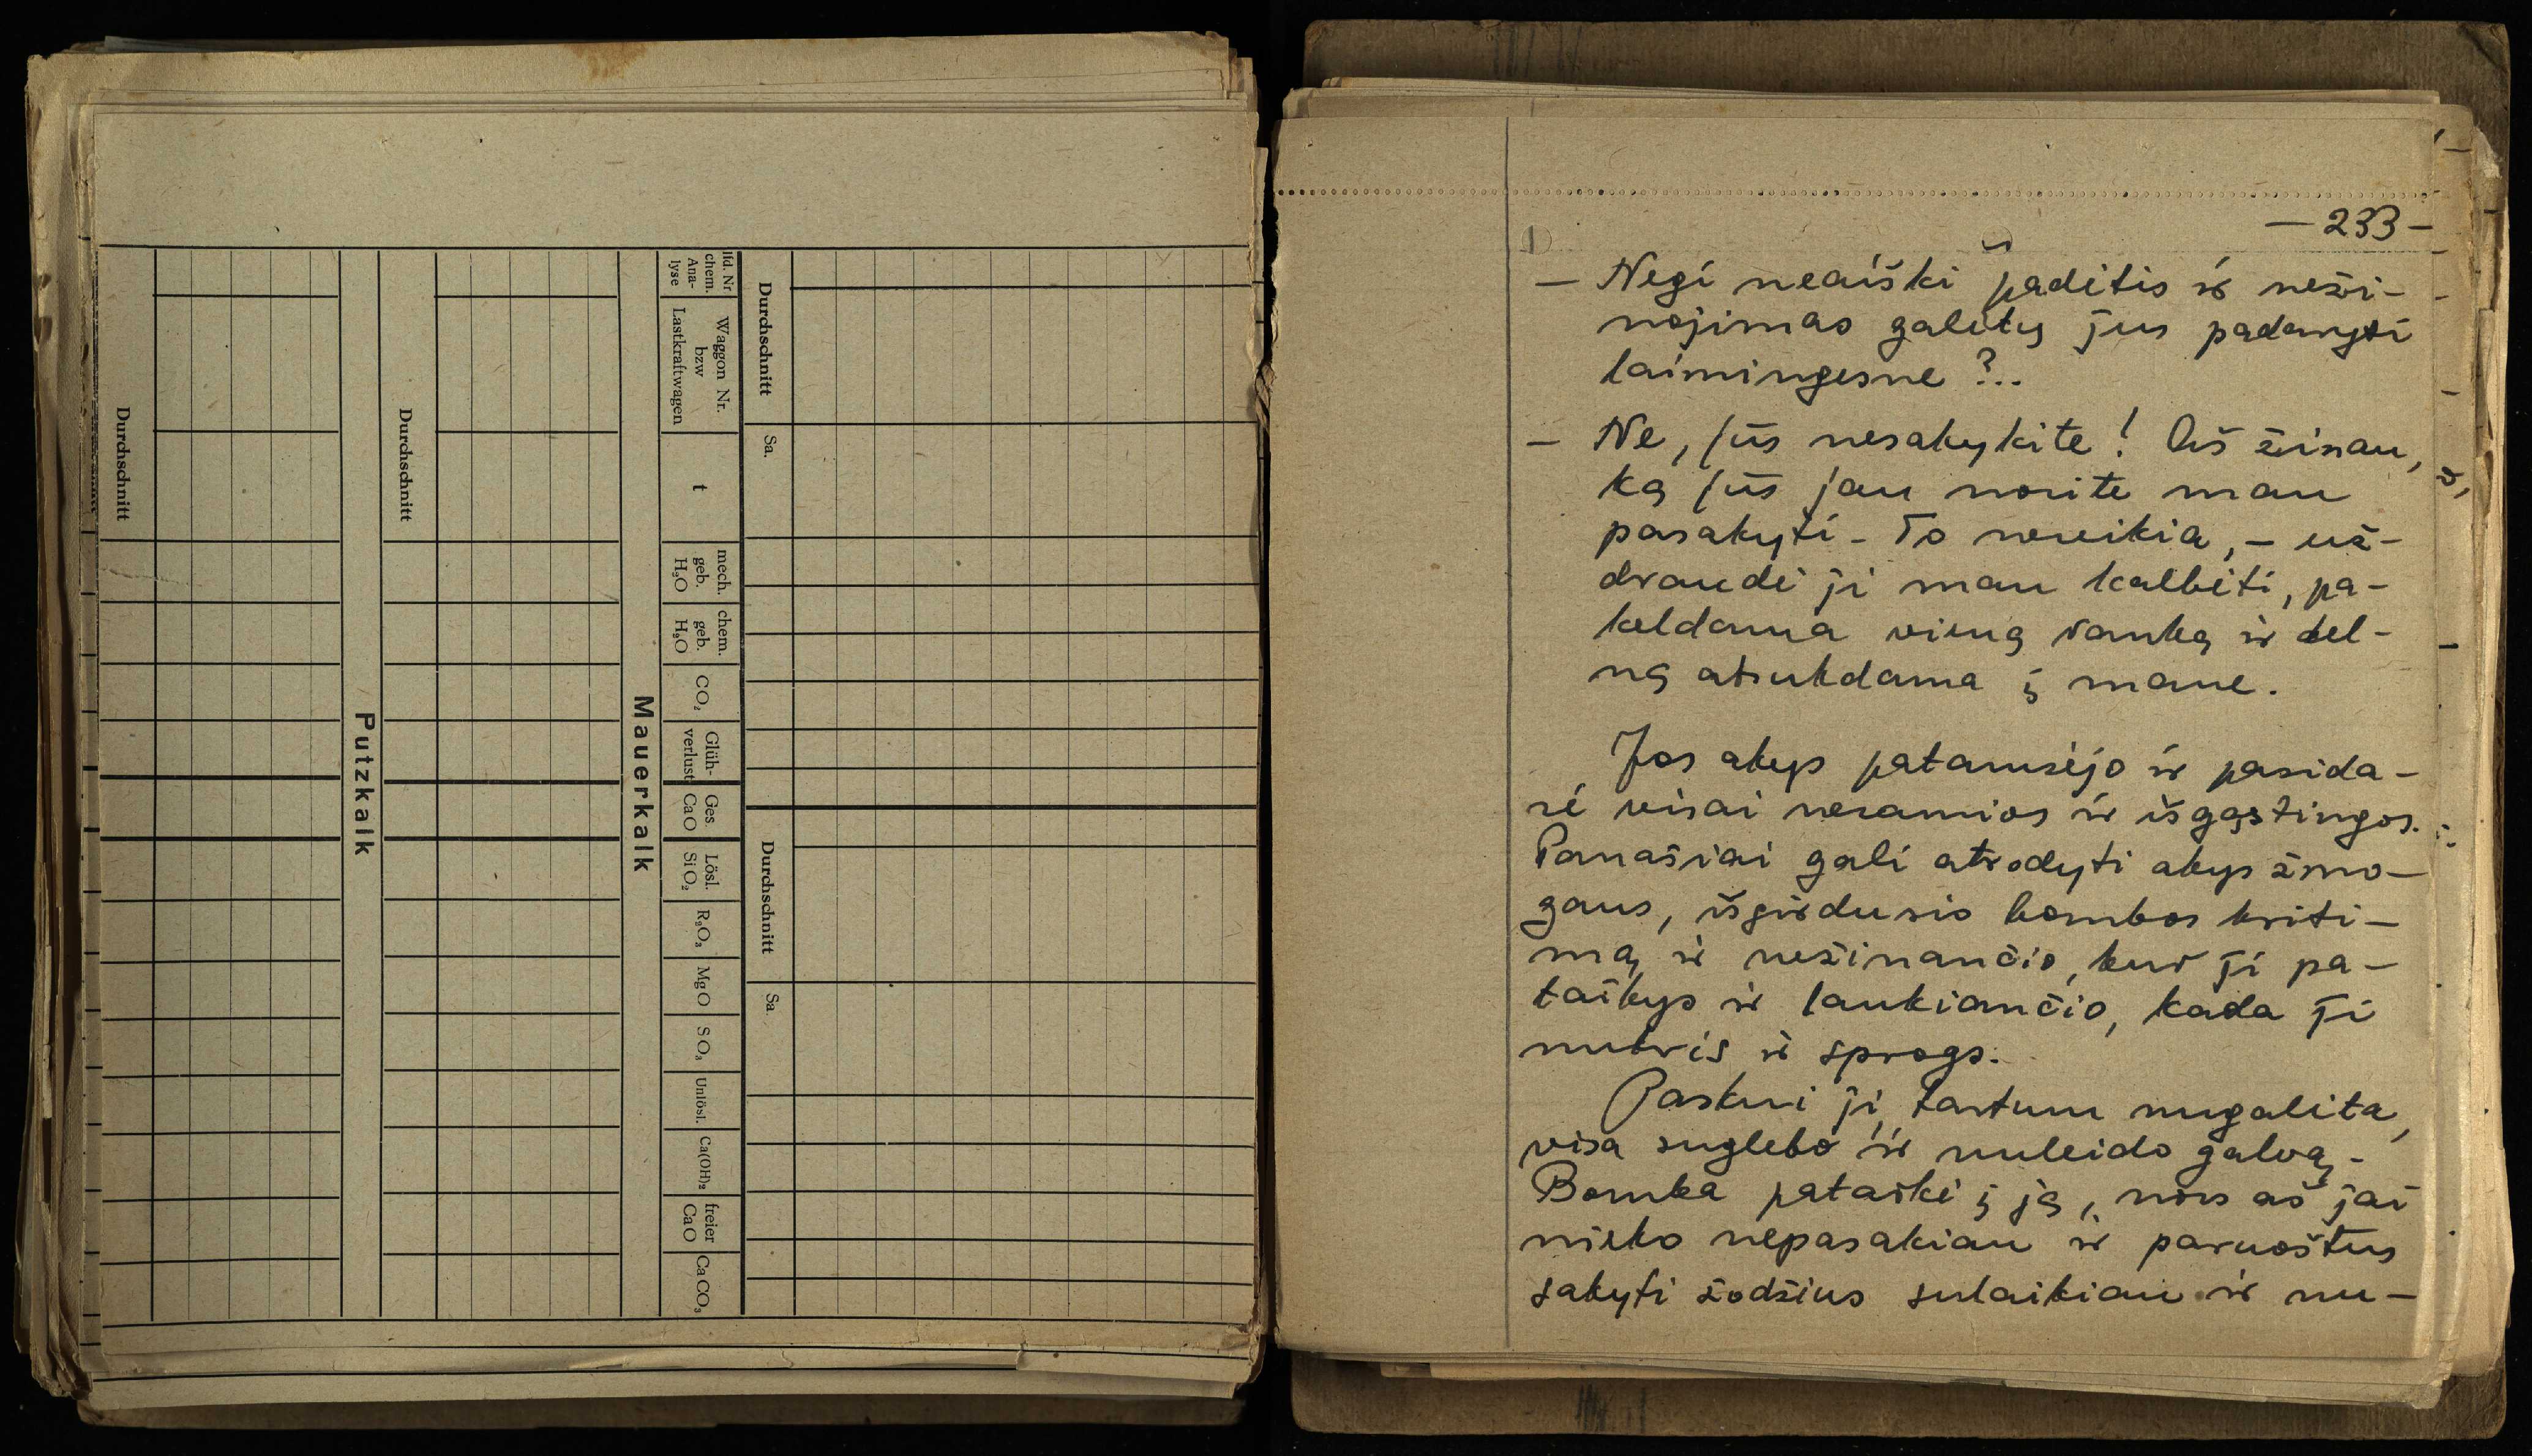 Durchschnitt
Sa.
Durchschnitt
Sa.
lfd. Nr. chem. Ana-lyse
Waggon Nr. bzw Lastkraftwagen
t
mech. geb. H₂O
chem. geb. H₂O
CO₂
Glüh-verlust
Ges. CaO
Lösl. SiO₂
R₂O₃
MgO
SO₃
Unlösl.
Ca(OH)₂
freier CaO
CaCO₃
Mauerkalk
Durchschnitt
Putzkalk
Durchschnitt
– 233 –
– Negi neaiški padėtis ir neži-
nojimas galėtų jus padaryti
laimingesne?..
– Ne, jūs nesakykite! Aš žinau,
ką jūs jau norite man
pasakyti – To nereikia, – už-
draudė ji man kalbėti, pa-
keldama vieną ranką ir del-
ną atsukdama į mane.
Jos akys patamsėjo ir pasida-
rė visai neramios ir išgąstingos.
Panašiai gali atrodyti akys žmo-
gaus, išgirdusio bombos kriti-
mą ir nežinančio, kur ji pa-
taikys ir laukiančio, kada ji
nukris ir sprogs.
Paskui ji, tartum nugalėta,
visa suglebo ir nuleido galvą.
Bomba pataikė į ją, nors aš jai
nieko nepasakiau ir paruoštus
sakyti žodžius sulaikiau ir nu-